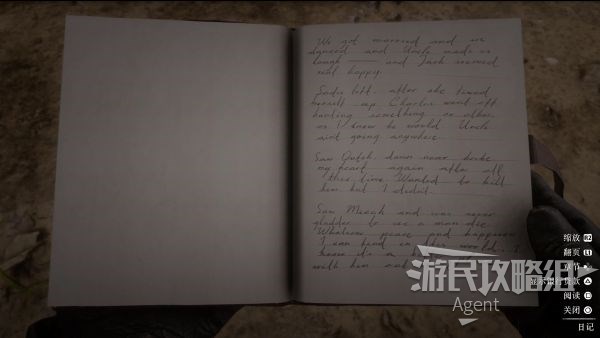 We got married and we
danced and Uncle made us
laugh and Jack seemed
real happy.
Sadie left after she timed
herself up. Charles went off
hunting something or other,
as I knew he would. Uncle
aint going anywhere.
Saw Dutch damn near broke
my heart again after all
this time. Wanted to kill
him but I didn't.
Saw Micah and was never
gladder to see a man die.
Whatever peace and happiness
I can find in this world, I
know it's a
with him
缩放 R2
翻页 L1
章节
显示银行贷款
阅读
关闭
日记
游民攻略组
Agent